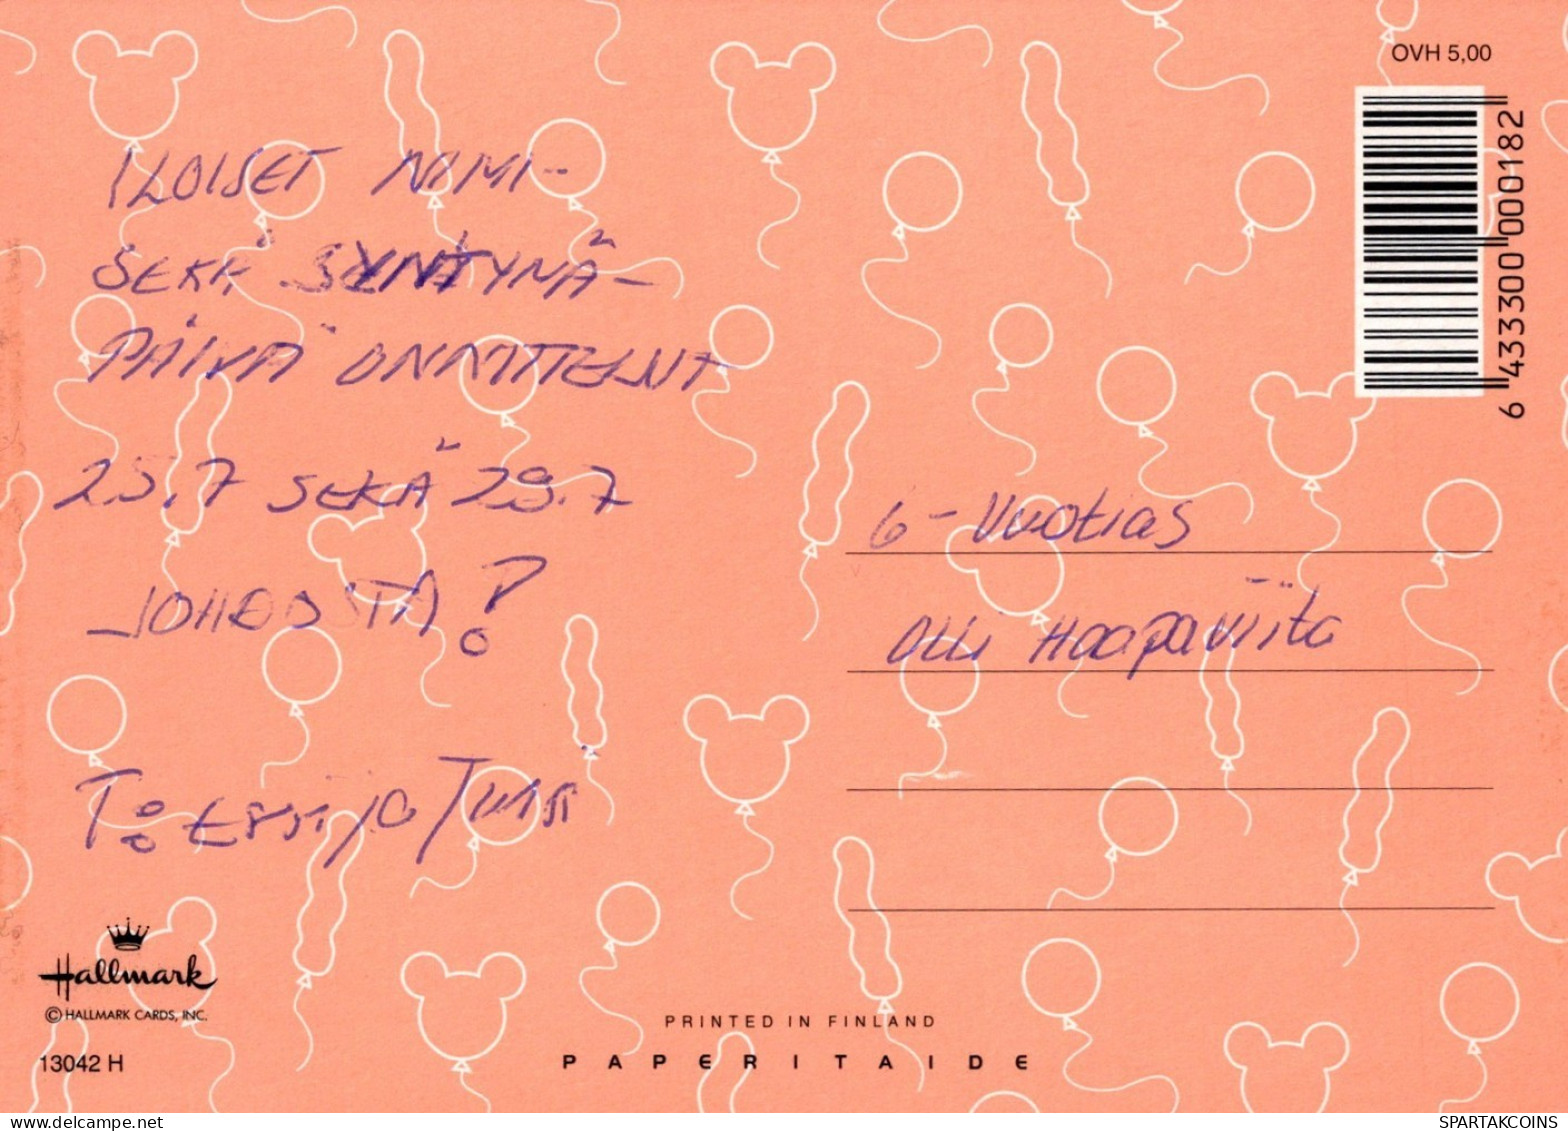 OVH 5,00
6 433300 000182
ILOISET NIMI-
SEKÄ SYNTYNÄ-
PÄIVÄ ONNITTELUT
25.7 SEKÄ 29.7
JOHDOSTA
6-vuotias
Olli Haapaviita
T:
ja
Hallmark
© HALLMARK CARDS, INC.
13042 H
PRINTED IN FINLAND
PAPERITAIDE
www.delcampe.net
SPARTAKCOINS